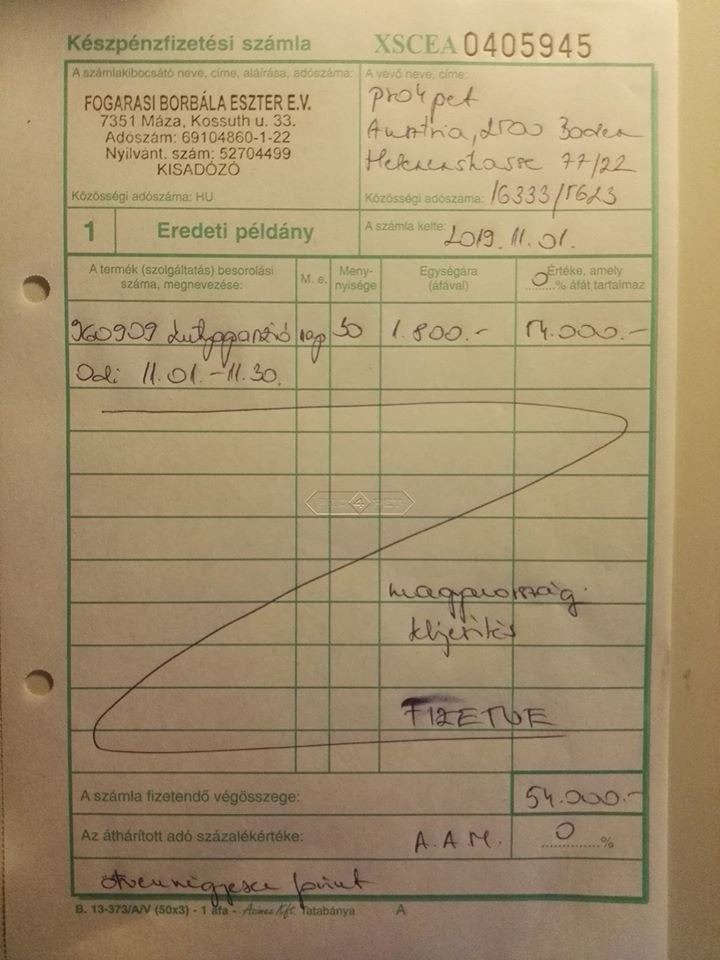 Készpénzfizetési számla XSCEA 0405945
A számlakibocsátó neve, címe, aláírása, adószáma:
FOGARASI BORBÁLA ESZTER E.V.
7351 Máza, Kossuth u. 33.
Adószám: 69104860-1-22
Nyilvánt. szám: 52704499
KISADÓZÓ
Közösségi adószáma: HU
A vevő neve, címe:
Pro4pet
Austria, 2500 Baden
77/22
Közösségi adószáma: 16333/5623
1 Eredeti példány
A számla kelte: 2019.11.01.
A termék (szolgáltatás) besorolási száma, megnevezése: M. e. Meny-nyisége Egységára (áfával) 0 Értéke, amely % áfát tartalmaz
960909 Kutyapanzió nap 30 1.800.- 54.000.-
Odi 11.01.-11.30.
PRO 4 PET
Magyarország
teljesítés
FIZETVE
A számla fizetendő végösszege: 54.000.-
Az áthárított adó százalékértéke: A.A.M. 0 %
ötvennégyezer forint
B. 13-373/A/V (50x3) - 1 áfa - Azimex Kft. Tatabánya A